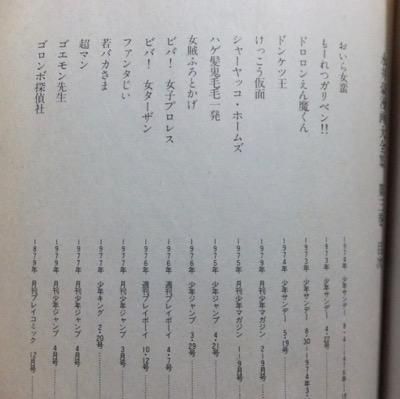 おいら女蛮 1974年 少年サンデー
もーれつガリベン!! 1973年 少年サンデー 4・22号
ドロロンえん魔くん 1973年 少年サンデー 8・30―1974年3・
ドンケツ王 1974年 少年サンデー 5・19号
けっこう仮面 月刊少年マガジン 2―9月号
シャーヤッコ・ホームズ 1975年 月刊少年マガジン 1―9月号
ハゲ髪鬼毛毛一発 1975年 少年ジャンプ 4・21号
女賊ふろとかげ 1976年 少年ジャンプ 3・29号
ビバ!女子プロレス 1976年 週刊プレイボーイ 4・7号
ビバ!女ターザン 1976年 週刊プレイボーイ 10・12号
ファンタじい 1977年 月刊少年ジャンプ 3月号
若バカさま 1977年 少年キング 2・20号
超マン 月刊少年ジャンプ 4月号
ゴエモン先生 1979年 月刊少年ジャンプ 4月号
ゴロンボ探偵社 月刊プレイコミック 12月号